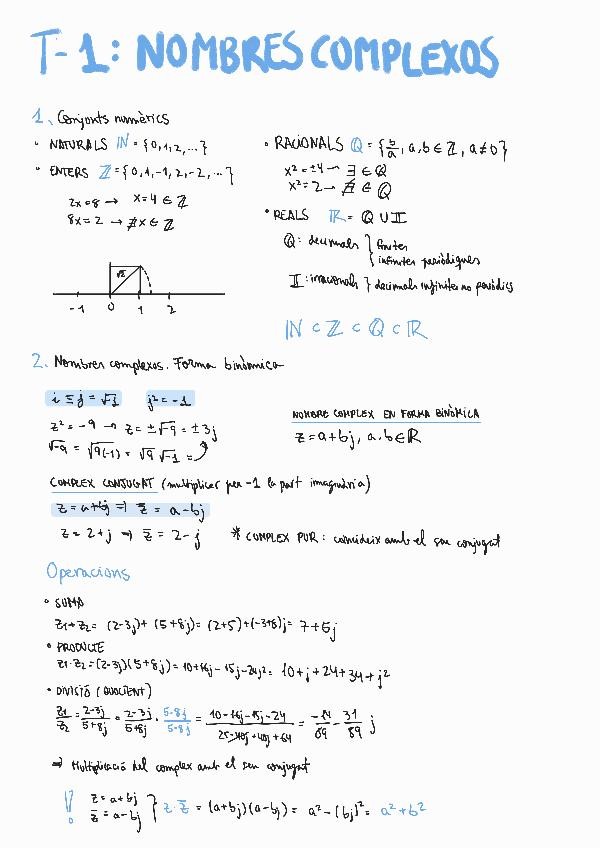 T-1: NOMBRES COMPLEXOS
1. Conjunts numèrics
• NATURALS ℕ = {0,1,2,...}
• ENTERS ℤ = {0,1,-1,2,-2,...}
2x=8 → x=4 ∈ ℤ
8x=2 → ∄x ∈ ℤ
√2
-1 0 1 2
• RACIONALS ℚ = {b/a, a,b ∈ ℤ, a≠0}
x² = ±4 → ∃ ∈ ℚ
x² = 2 → ∄ ∈ ℚ
• REALS ℝ = ℚ ∪ 𝕀
ℚ: decimals } finites
infinites periòdiques
𝕀: irracionals } decimals infinites no periòdics
ℕ ⊂ ℤ ⊂ ℚ ⊂ ℝ
2. Nombres complexos. Forma binòmica
j² = -1
z² = -9 → z = ±√-9 = ±3j
√-9 = √9(-1) = √9 √-1 =
NOMBRE COMPLEX EN FORMA BINÒMICA
z = a+bj, a,b ∈ ℝ
COMPLEX CONJUGAT (multiplicar per -1 la part imaginària)
z = a+bj ⇒ z̄ = a-bj
z = 2+j ⇒ z̄ = 2-j
* COMPLEX PUR: coincideix amb el seu conjugat
Operacions
• SUMA
z₁+z₂ = (2-3j) + (5+8j) = (2+5)+(-3+8)j = 7+5j
• PRODUCTE
z₁·z₂ = (2-3j)(5+8j) = 10+16j-15j-24j² = 10+j+24
• DIVISIÓ (QUOCIENT)
z₁/z₂ = 2-3j/5+8j = 2-3j/5+8j · 5-8j/5-8j = 10-16j-15j-24/25-40j+40j+64 = -14/89 - 31/89 j
⇒ Multiplicació del complex amb el seu conjugat
!! z = a+bj
z̄ = a-bj } z·z̄ = (a+bj)(a-bj) = a² - (bj)² = a²+b²